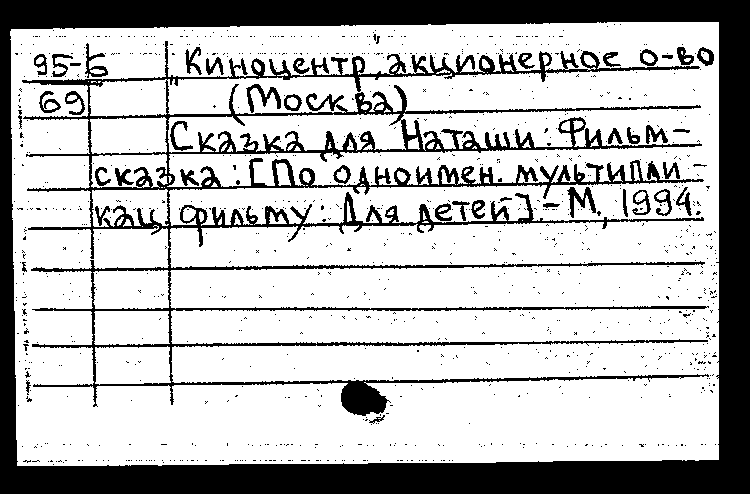 95-Б "Киноцентр", акционерное о-во
69 (Москва)
Сказка для Наташи: Фильм-
сказка: [По одноимен. мультипли-
кац. фильму: Для детей]. - М., 1994.